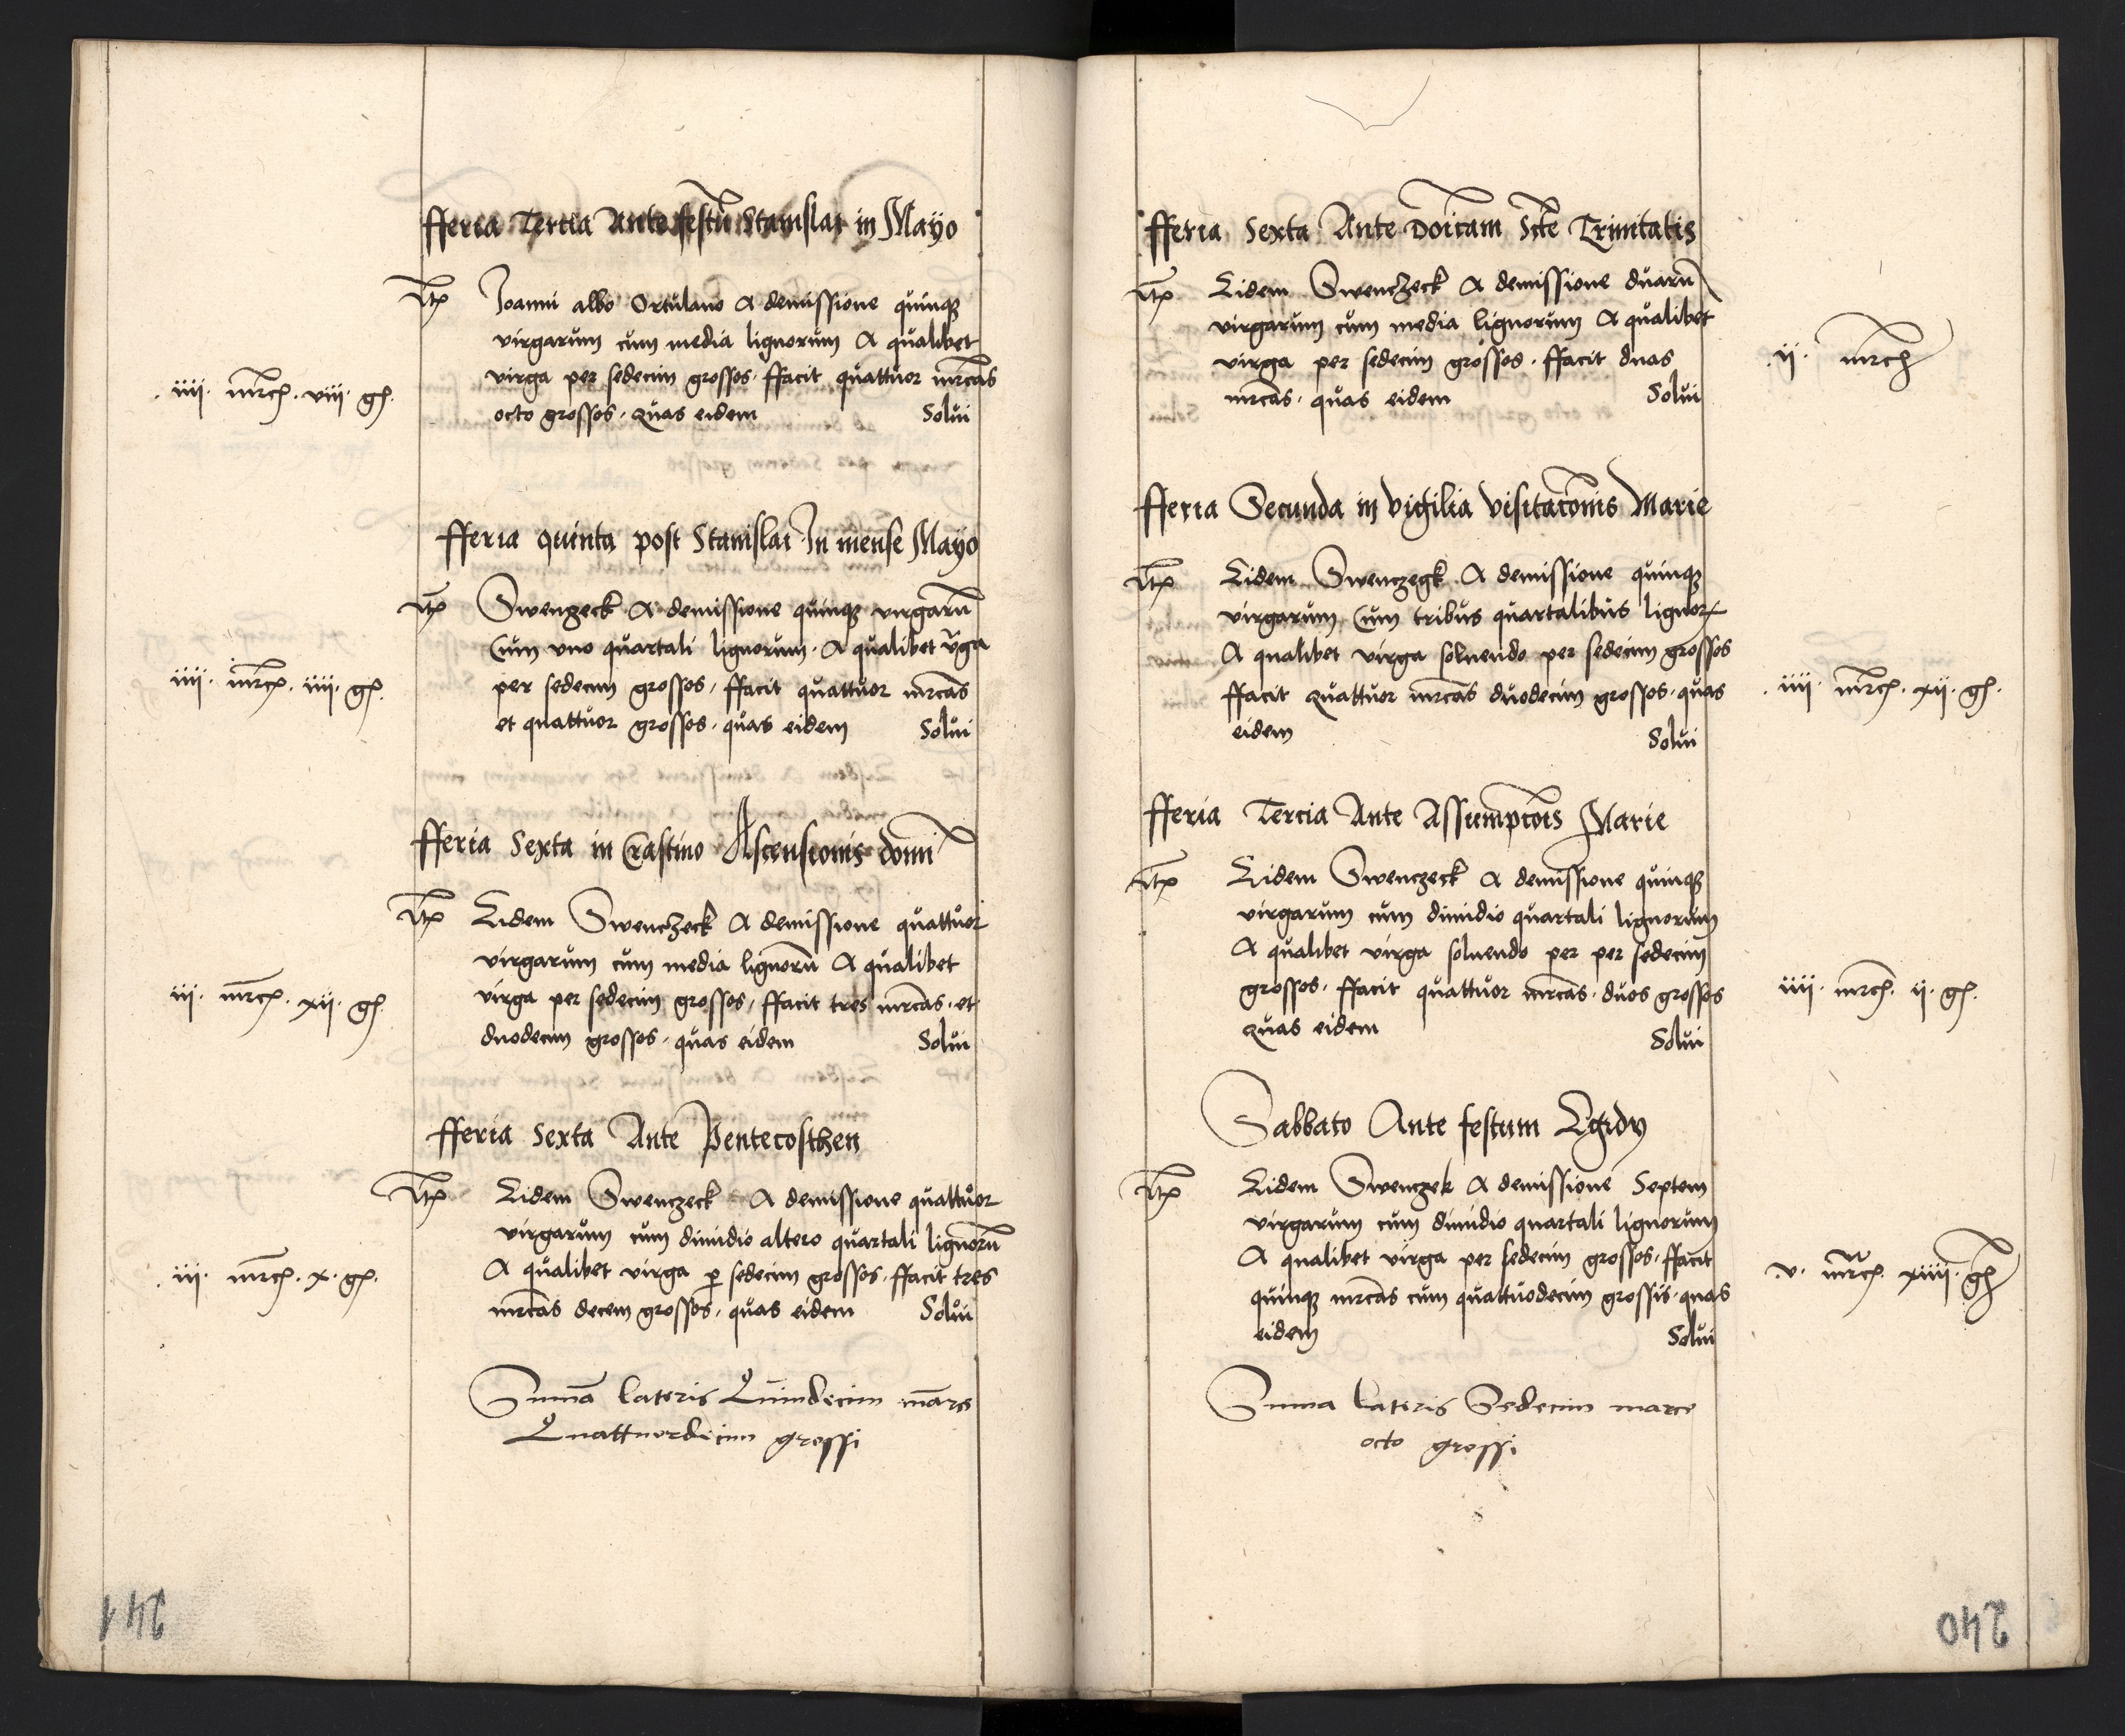 fferia Tercia Ante festū Stanislai in Mayo
Itē Joanni albo Ortulano A demissione quinqꝫ
virgarum cum media lignorum A qualibet
virga per sedecim grossos · ffacit quattuor mrcas
· iiii · mrcꝭ · viii · gꝭ ·
octo grossos · quas eidem Solui
fferia quinta post Stanislai In mense Mayo
Itē Swenczeck A demissione quinqꝫ virgarū
Cum vno quartali lignorum · A qualibet v̄ga
iiii · mrcꝭ · iiii · gꝭ ·
per sedecim grossos / ffacit quattuor mrcas
et quattuor grossos · quas eidem Solui
fferia Sexta in Crastino Ascensionis domi
Itē Eidem Swenczeck A demissione quattuor
virgarum cum media lignorū A qualibet
iii · mrcꝭ · xii · gꝭ ·
virga per sedecim grossos / ffacit tres mrcas · et
duodecim grossos · quas eidem Solui
fferia Sexta Ante Pentecosthen
Itē Eidem Swenczeck A demissione quattuor
virgarum cum dimidio altero quartali lignorū
· iii · mrcꝭ · x · gꝭ ·
A qualibet virga ꝑ sedecim grossos · ffacit tres
mrcas decem grossos · quas eidem Solui
Suma lateris Quindecim marce
Quattuordecim grossi
241
fferia Sexta Ante Doicam Scte Trinitatis
Itē Eidem Swenczeck A demissione duarū
virgarum cum media lignorum A qualibet
virga per sedecim grossos · ffacit duas
· ii · mrcꝭ
mrcas · quas eidem Solui
fferia Secunda in vigilia visitacōnis Marie
Itē Eidem Swenczegk A demissione quinqꝫ
virgarum Cum tribus quartalibus lignorꝝ
A qualibet virga soluendo per sedecim grossos
ffacit quattuor mrcas duodecim grossos · quas
· iiii · mrcꝭ · xii · gꝭ ·
eidem Solui
fferia Tercia Ante Assumpcōis Marie
Itē Eidem Swenczeck A demissione quinqꝫ
virgarum cum dimidio quartali lignorum
A qualibet virga soluendo per per sedecim
grossos · ffacit quattuor mrcas · duos grossos
iiii · mrcꝭ · ii · gꝭ ·
quas eidem Solui
Sabbato Ante festum Egidy
Itē Eidem Swenczek A demissione Septem
virgarum cum dimidio quartali lignorum
A qualibet virga per sedecim grossos · ffacit
· v · mrcꝭ · xiiii · gꝭ
quinqꝫ mrcas cum quattuodecim grossis · quas
eidem Solui
Suma lateris Sedecim marce
octo grossi
240